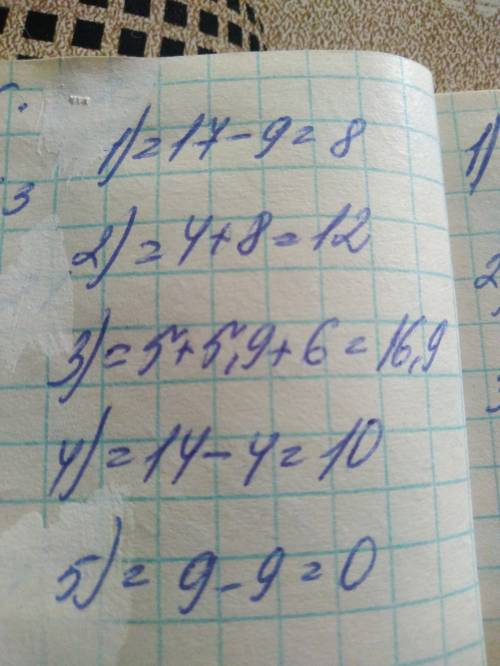 1) = 17 - 9 = 8
2) = 4 + 8 = 12
3) = 5 + 5,9 + 6 = 16,9
4) = 14 - 4 = 10
5) = 9 - 9 = 0
3
1)
2